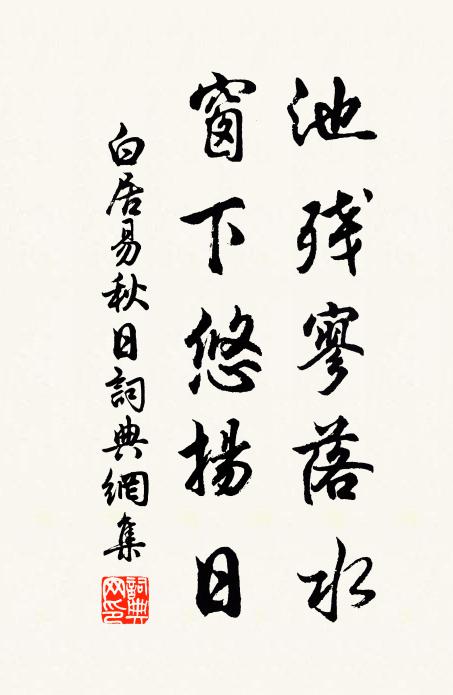 池残寥落水
窗下悠揚日
白居易秋日詞典網集
詞典網印